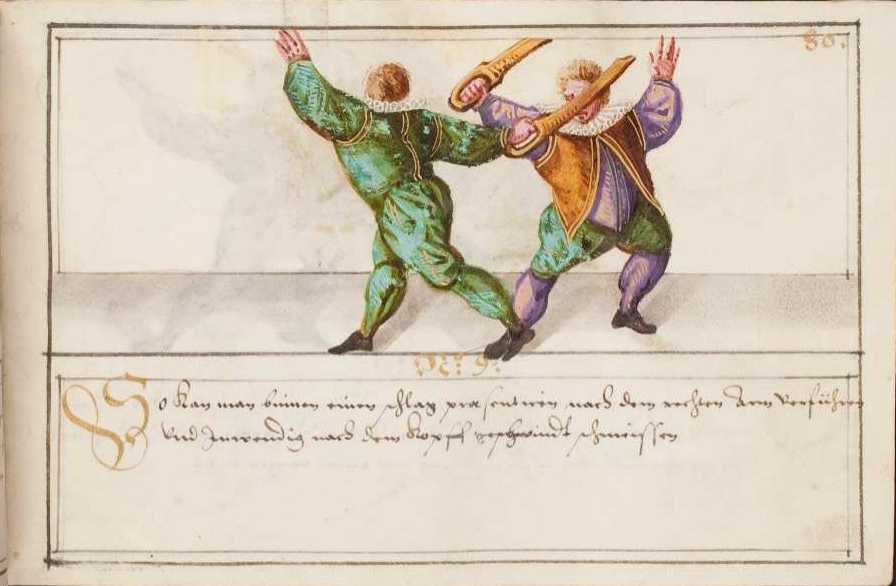 80.
No: 9.
So Kan man binnen einen schlag praesentiren nach dem rechten Arm verführen
Vnd Inwendig nach dem Kopff geschwindt schmeissen